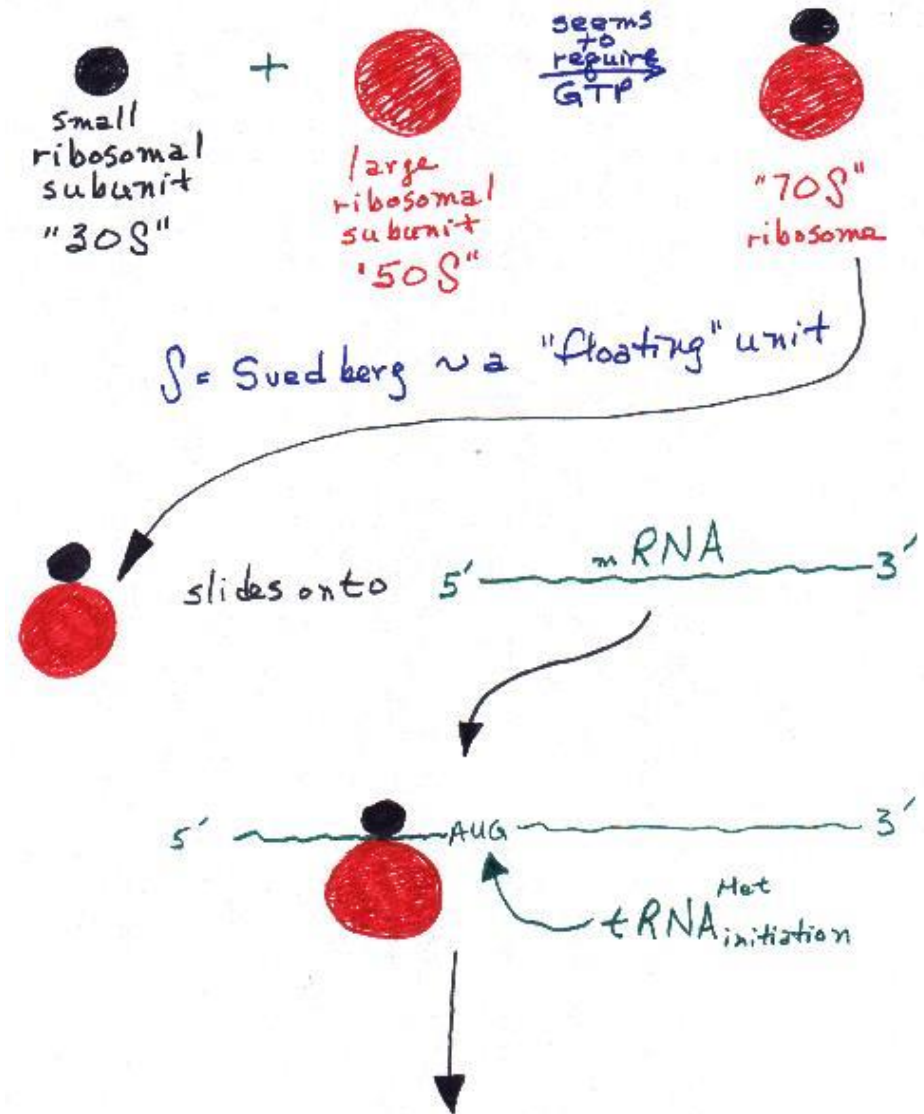 small
ribosomal
subunit
"30S"
+
large
ribosomal
subunit
'50S"
seems
to
require
GTP
"70S"
ribosome
S = Svedberg ~ a "floating" unit
slides onto
5' mRNA 3'
5' AUG 3'
tRNA Met initiation